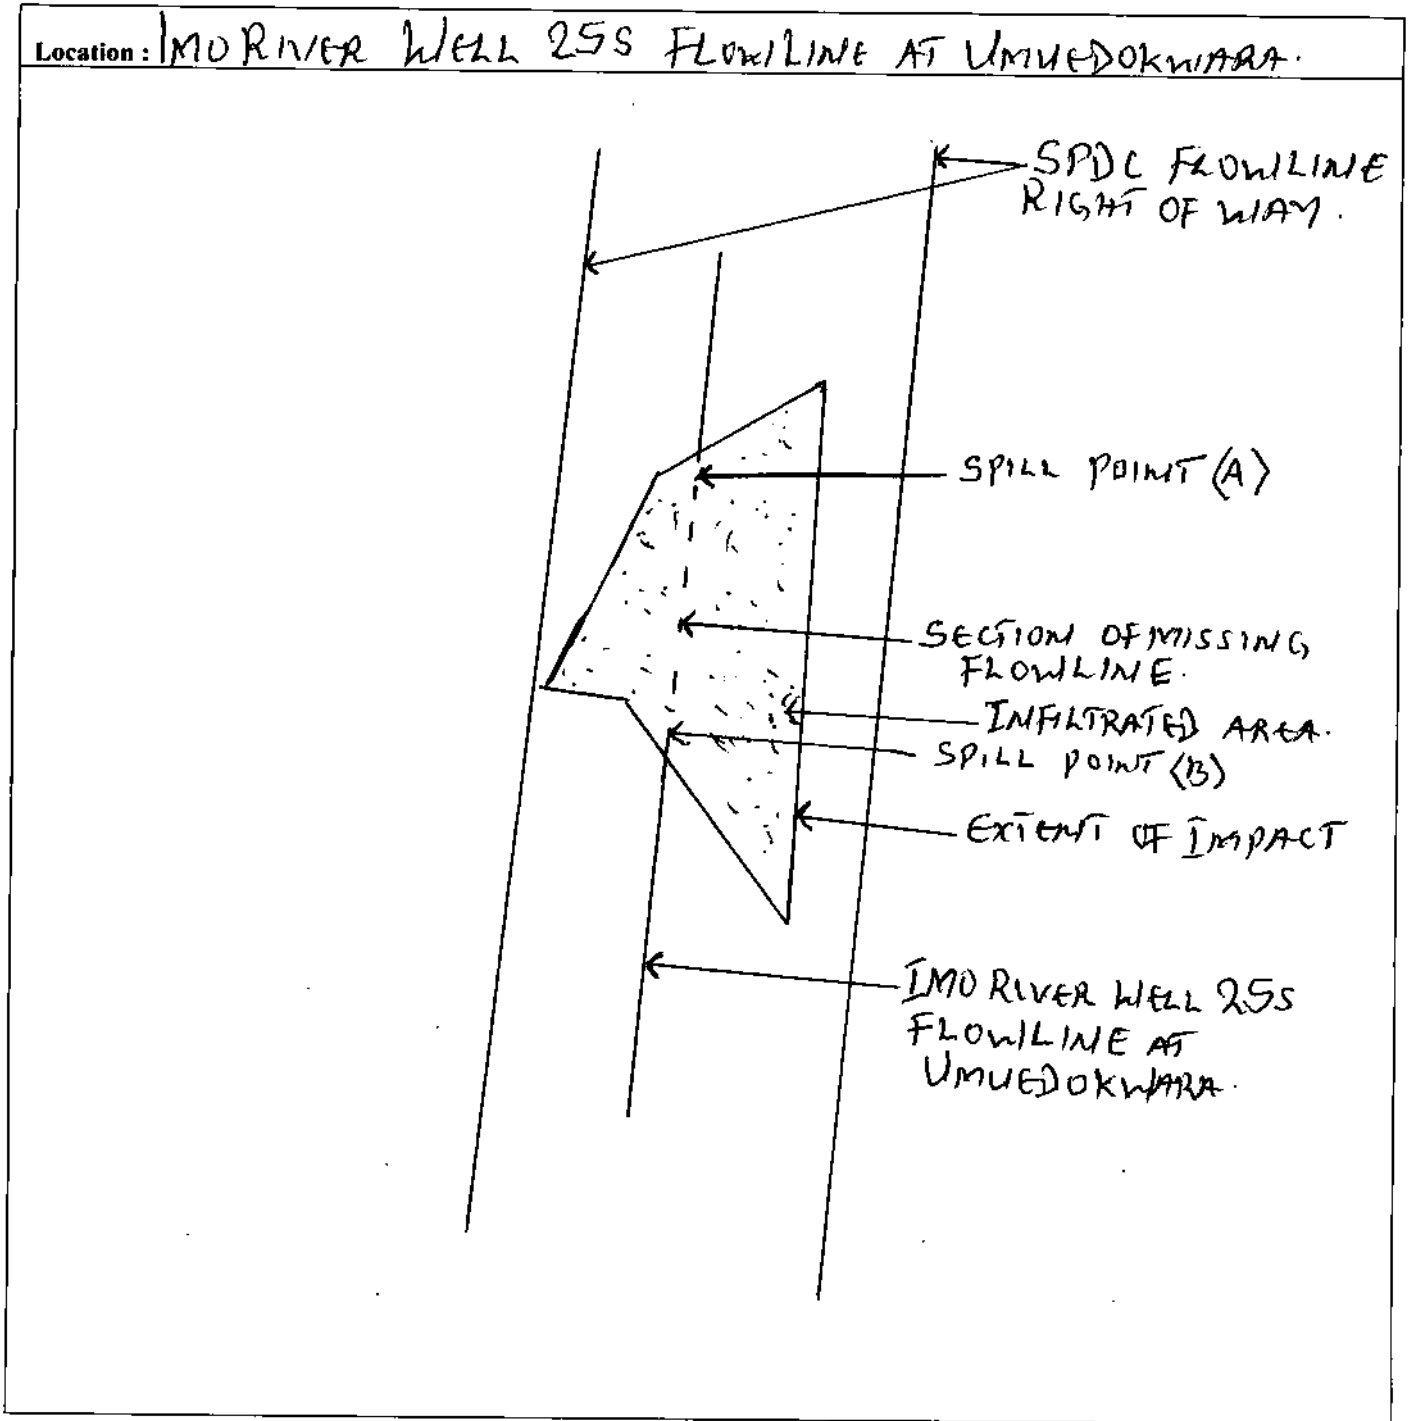 Location: IMO RIVER WELL 25S FLOWLINE AT UMUEDOKWARA.
SPDC FLOWLINE
RIGHT OF WAY.
SPILL POINT (A)
SECTION OF MISSING
FLOWLINE.
INFILTRATED AREA.
SPILL POINT (B)
EXTENT OF IMPACT
IMO RIVER WELL 25S
FLOWLINE AT
UMUEDOKWARA.